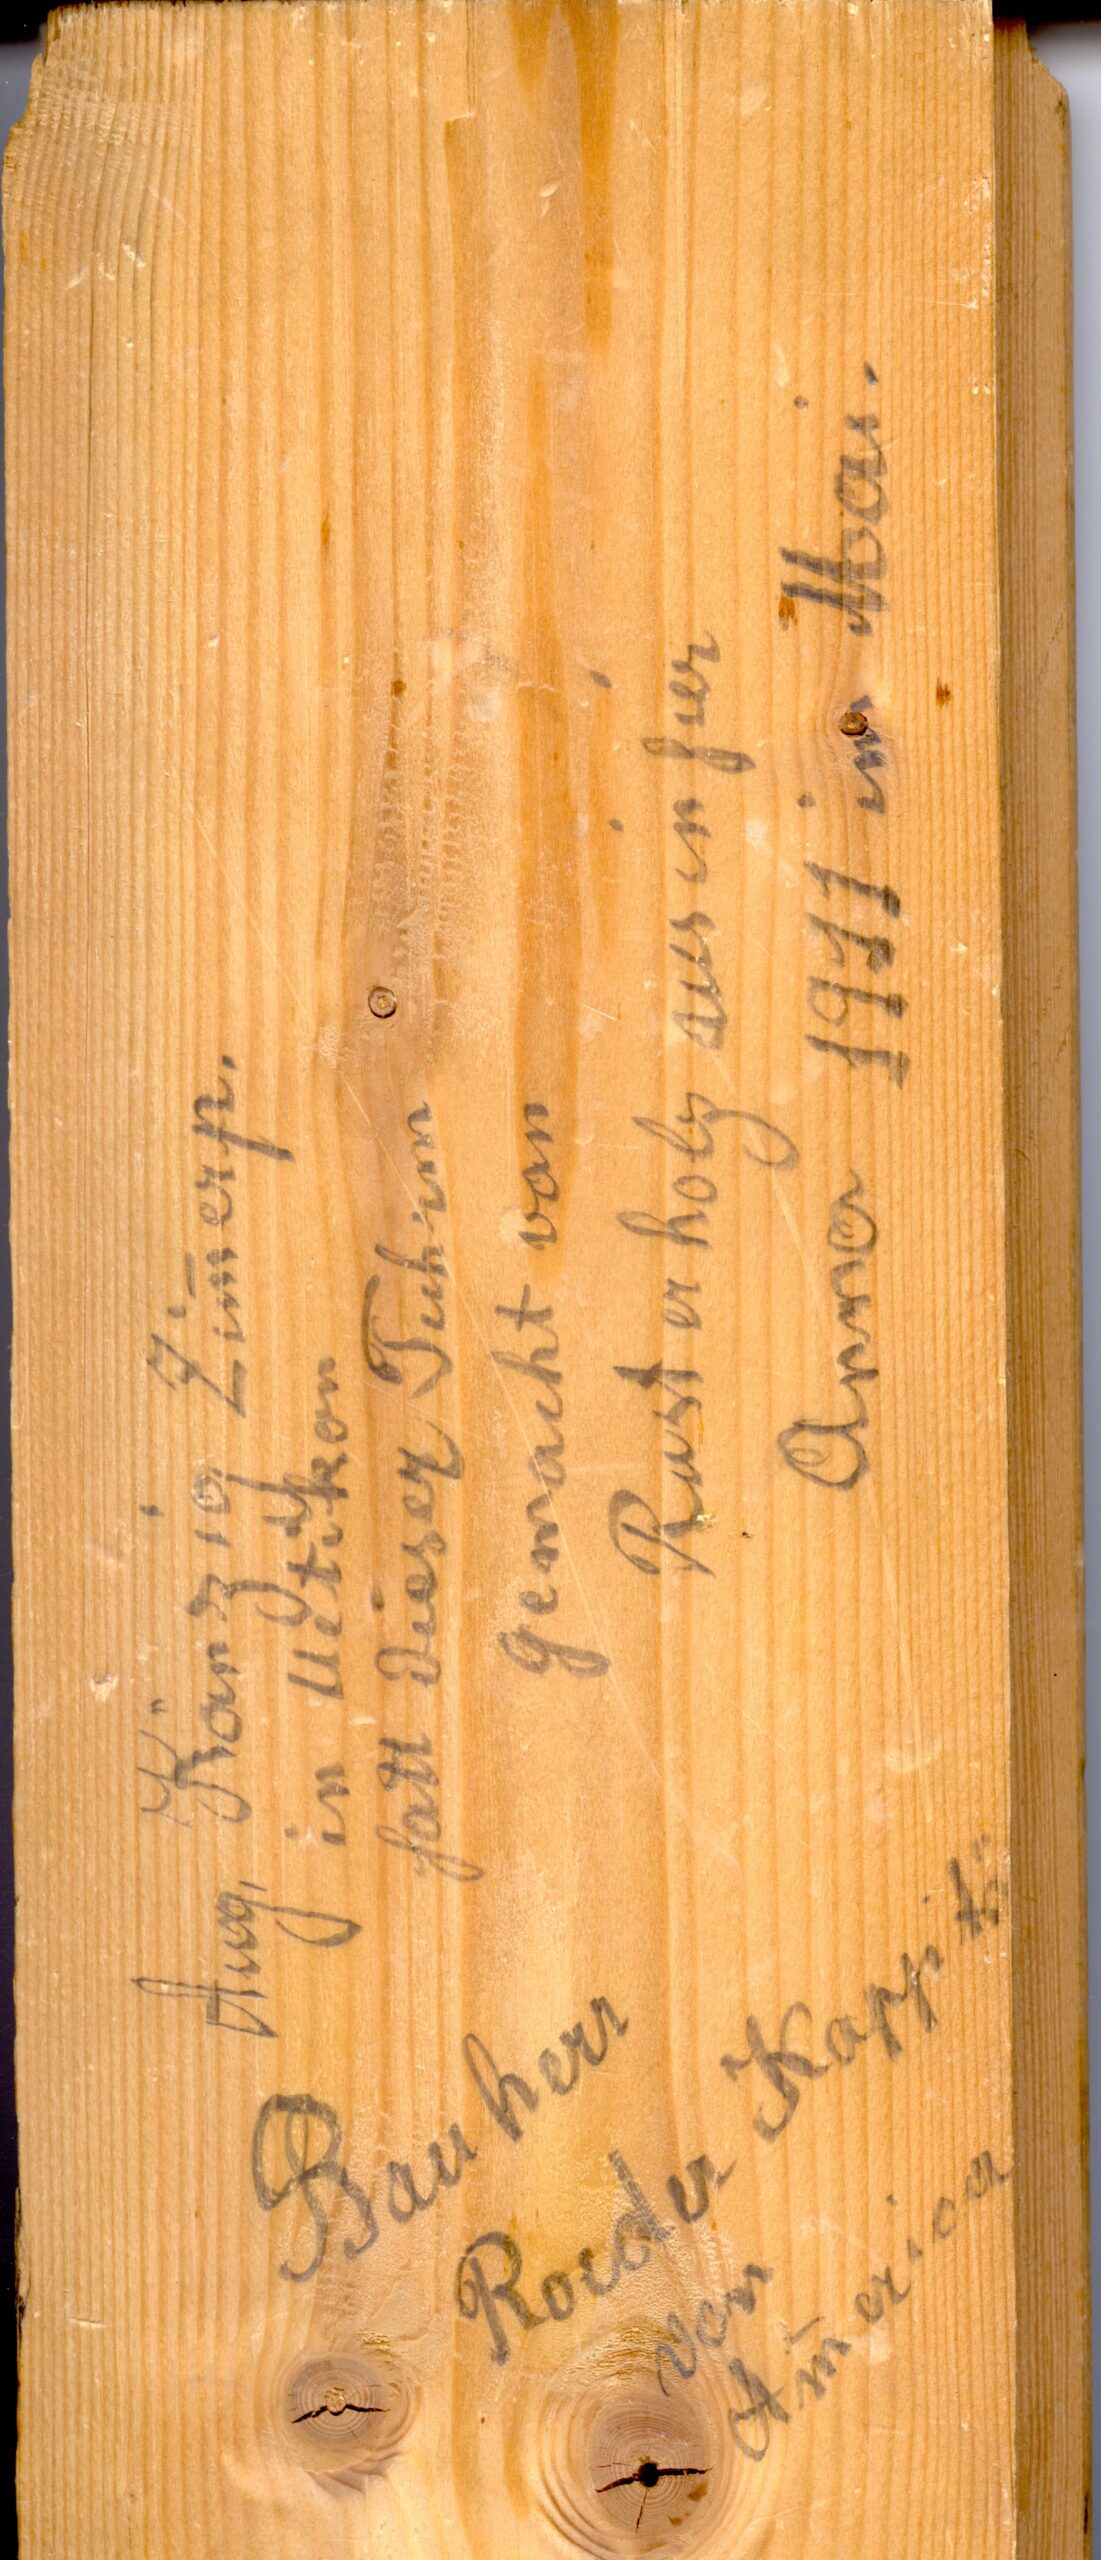 Aug. Känzig Zim̄erp.
in Uetikon
hatt dieser
gemacht von
Rusterholz aus in hier
Anno 1911 im Mai.
Bauherr
Roeder Kappit"
von
Am̄erica